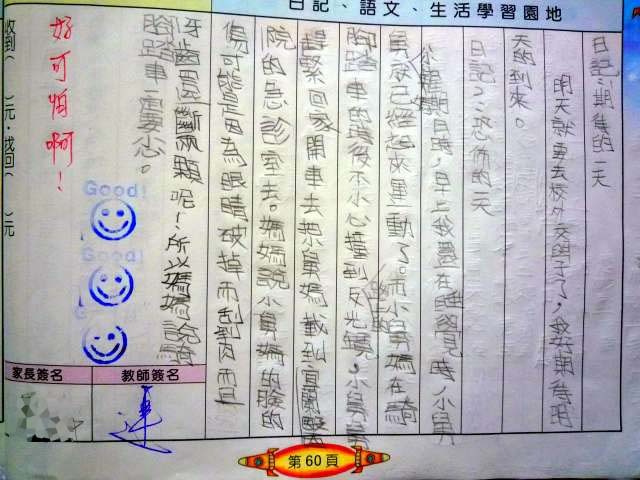 日記、語文、生活學習園地
日記:期待的一天
明天就要去校外教學了,我好期待明
天的到來。
日記2:恐佈的一天
星期日時,早上我還在睡覺時,小舅
舅就已經起來運動了。而小舅媽在騎
腳踏車的時後不小心撞到反光鏡,小舅舅
趕緊回家開車去把舅媽載到宜蘭醫
院的急診室去。媽媽說小舅媽的臉的
傷可能是因為眼睛破掉而刮到肉而且
牙齒還斷兩顆呢!所以媽媽說騎
腳踏車一定要小心。
好可怕啊!
收到( )元,找回( )元
Good!
Good!
家長簽名
教師簽名
第60頁